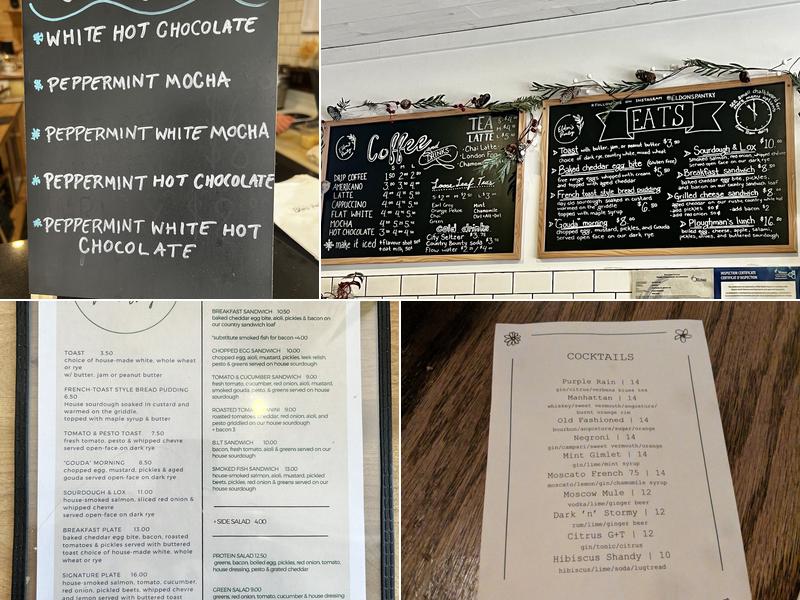 WHITE HOT CHOCOLATE
PEPPERMINT MOCHA
PEPPERMINT WHITE MOCHA
PEPPERMINT HOT CHOCOLATE
PEPPERMINT WHITE HOT
CHOCOLATE
Coffee
DRINKS
DRIP COFFEE
AMERICANO
LATTE
CAPPUCCINO
FLAT WHITE
MOCHA
HOT CHOCOLATE
make it iced
+flavour shot
+oat milk
TEA
LATTE
Chai Latte
London Fog
Loose Leaf Teas
Earl Grey
Orange Pekoe
Chai
Green
Mint
Chamomile
Cold drinks
City Seltzer
Country Bounty soda
Flow water
FOLLOW US ON INSTAGRAM @ELDONSPANTRY
EATS
Toast with butter, jam, or peanut butter $3.50
choice of dark rye country white mixed wheat
Baked cheddar egg bite (gluten free)
free range eggs whipped with cream $5.50
and topped with aged cheddar
French toast style bread pudding
day old sourdough soaked in custard
warmed on the griddle
topped with maple syrup
Gouda morning $8.00
chopped egg, mustard, pickles, and Gouda
Served open face on dark rye
Sourdough & Lox $10.00
Served open face on our dark rye
Breakfast sandwich
and bacon on our country sandwich loaf
Grilled cheese sandwich
Ploughman's lunch
boiled egg, cheese, apple, salami,
pickles, olives, and buttered sourdough
INSPECTION CERTIFICATE
CERTIFICAT D'INSPECTION
TOAST 3.50
choice of house-made white, whole wheat
or rye
w/ butter, jam or peanut butter
FRENCH-TOAST STYLE BREAD PUDDING
6.50
House sourdough soaked in custard and
warmed on the griddle.
topped with maple syrup & butter
TOMATO & PESTO TOAST 7.50
fresh tomato, pesto & whipped chevre
served open-face on dark rye
'GOUDA' MORNING 8.50
chopped egg, mustard, pickles & aged
gouda served open-face on dark rye
SOURDOUGH & LOX 11.00
house-smoked salmon, sliced red onion &
whipped chevre
served open-face on dark rye
BREAKFAST PLATE 13.00
baked cheddar egg bite, bacon, roasted
tomatoes & pickles served with buttered
toast choice of house-made white, whole
wheat or rye
SIGNATURE PLATE 16.00
house-smoked salmon, tomato, cucumber,
red onion, pickled beets, whipped chevre
and lemon served with buttered toast
BREAKFAST SANDWICH 10.50
baked cheddar egg bite, aioli, pickles & bacon on
our country sandwich loaf
*substitute smoked fish for bacon +4.00
CHOPPED EGG SANDWICH 10.00
chopped egg, aioli, mustard, pickles, leek relish,
pesto & greens served on house
sourdough
TOMATO & CUCUMBER SANDWICH 9.00
fresh tomato, cucumber, red onion, aioli, mustard,
smoked gouda, pesto & greens served on house
sourdough
ROASTED TOMATO PANINI 9.00
roasted tomatoes, cheddar, red onion, aioli, and
pesto griddled on our house sourdough
+ bacon 3
B.L.T SANDWICH 10.00
bacon, fresh tomato, aioli & greens served on our
house sourdough
SMOKED FISH SANDWICH 13.00
house-smoked salmon, aioli, mustard, pickled
beets, pickles, red onion & greens served on our
house sourdough
+ SIDE SALAD 4.00
PROTEIN SALAD 12.50
greens, bacon, boiled egg, pickles, red onion, tomato,
house dressing, pesto & grated cheddar
GREEN SALAD 9.00
greens, red onion, tomato, cucumber & house dressing
COCKTAILS
Purple Rain | 14
gin/citrus/verbena blues tea
Manhattan | 14
whiskey/sweet vermouth/angosture/
burnt orange rim
Old Fashioned | 14
bourbon/angosture/sugar/orange
Negroni | 14
gin/campari/sweet vermouth/orange
Mint Gimlet | 14
gin/lime/mint syrup
Moscato French 75 | 14
moscato/lemon/gin/chamomile syrup
Moscow Mule | 12
vodka/lime/ginger beer
Dark 'n' Stormy | 12
rum/lime/ginger beer
Citrus G+T | 12
gin/tonic/citrus
Hibiscus Shandy | 10
hibiscus/lime/soda/lugtread